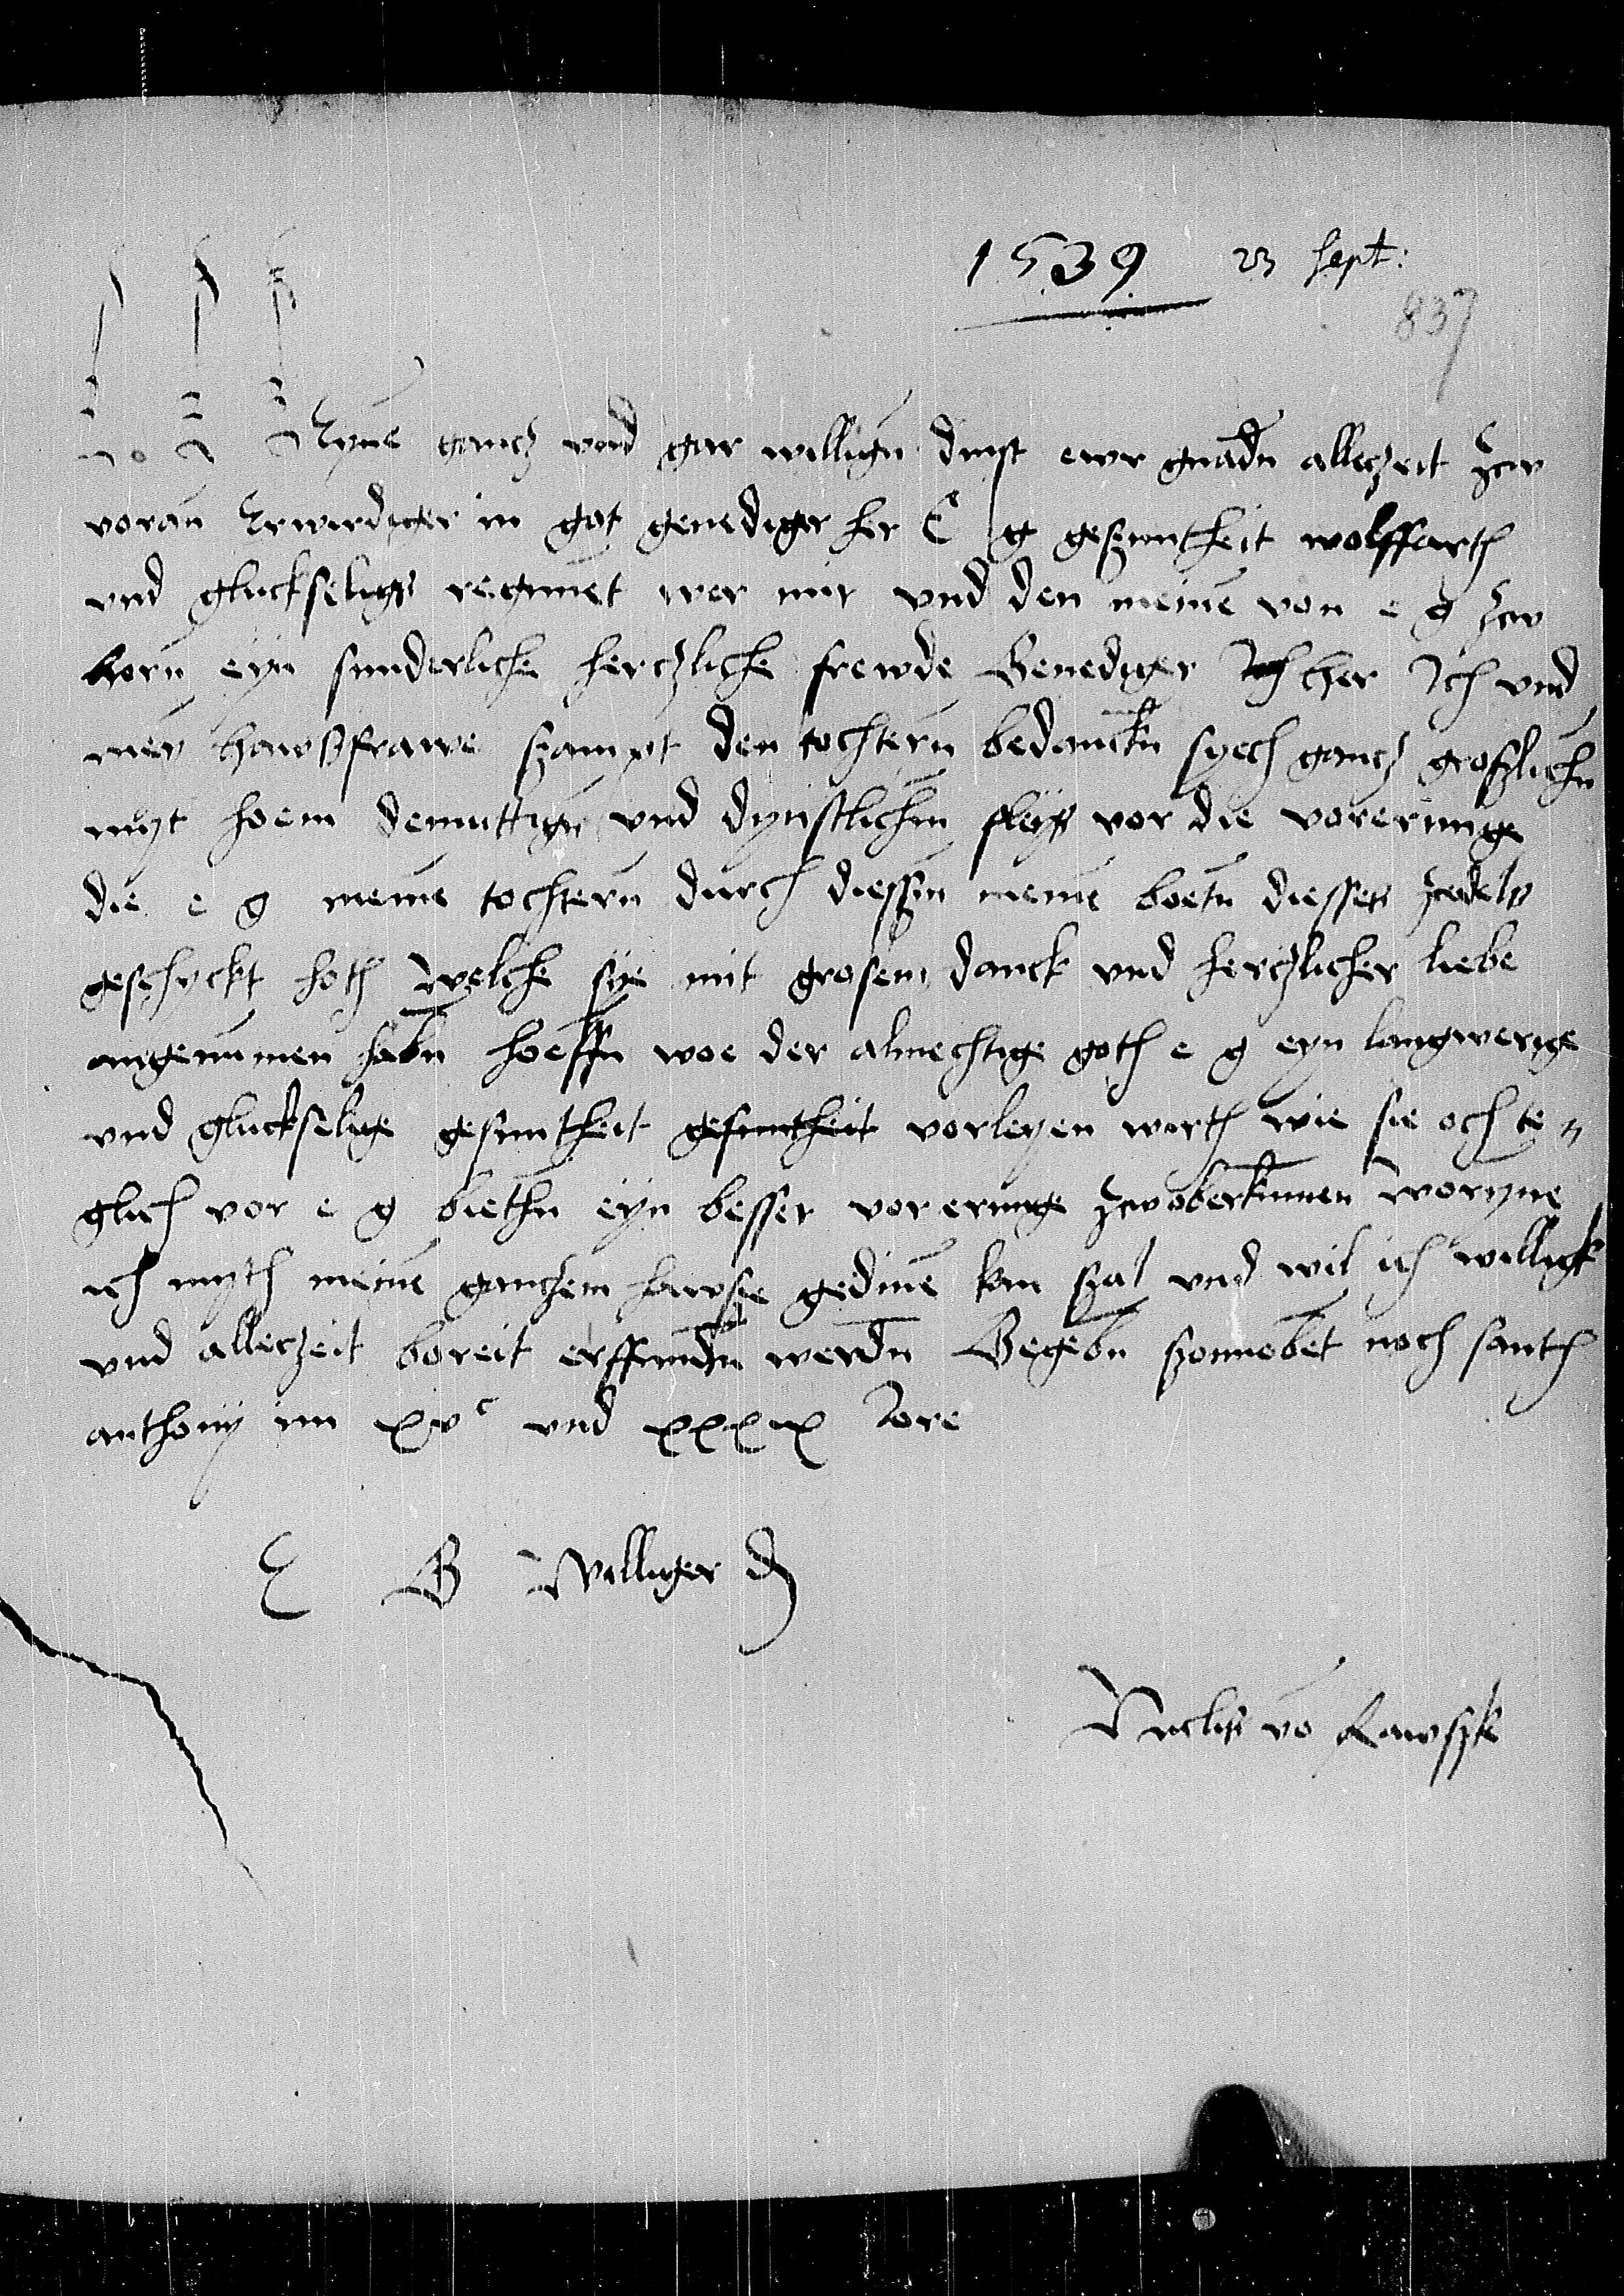 1539 23 Sept:
837
Meyne gancz und gar willign dinst ewr gnadn alleczeit zcw
voran Erwirdiger in got genediger her E g geszuntheit wolffarth
und gluckseligs regimet wer mir und den meine von e g zcw
horn eyn sunderliche herczliche frewde Genediger her Ich und
mey hawszfrawe szampt den tochtern bedanckn syech gancz groszlichn
myt hoem demuttign und dynstlichen fleys vor die vorerunge
die e g meine tochtern durch diessen meine boetn diesses zcedels
geschyckt hoth welche sye mit grosem danck und herczlicher liebe
angenumen habn hoeffn woe der almechtige goth e g eyn langwerige
und gluckselige gesuntheit gesuntheit vorleyen wirth wie sie och te =
glich vor e g biethn eyn besser vorerunge zcw oberkumen woryne
ich myth meine ganczem hawsze gediene kan szal und wil ich willigk
und alleczeit boreit erffundn werdn Gegebn szonnobet noch santh
anthony im xv c und xxxix Jore
E G Williger d
Nickls vo